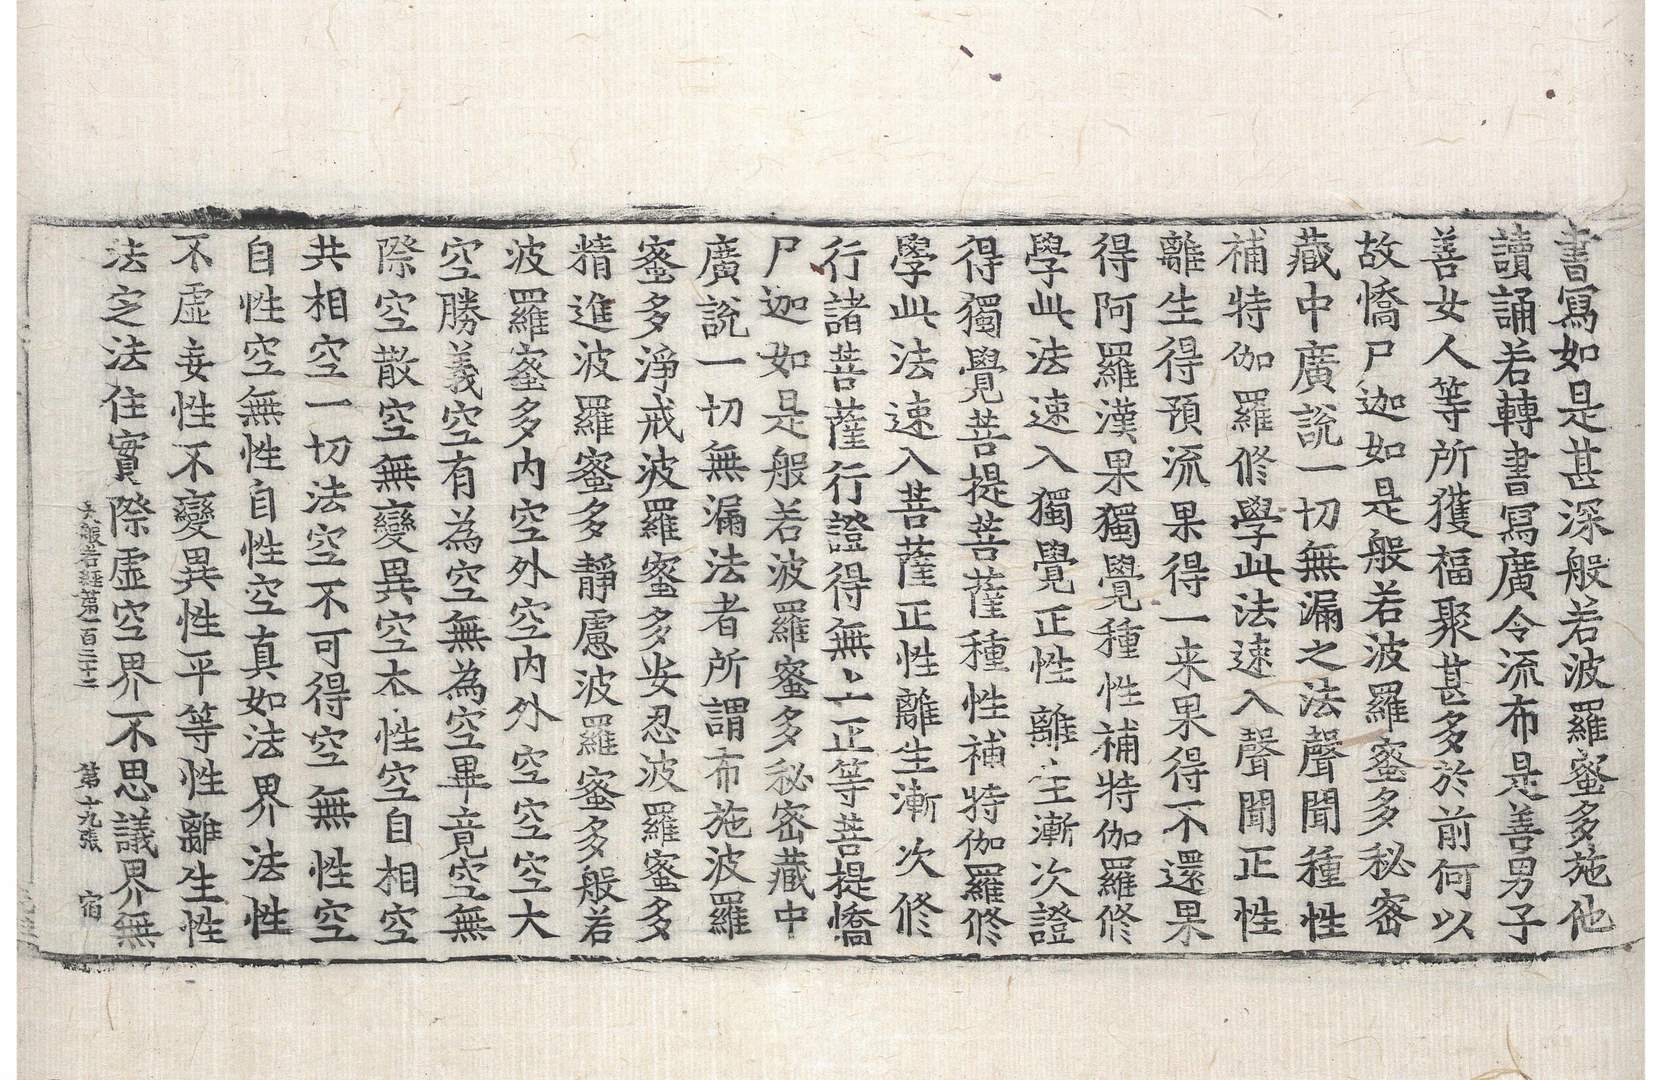 書寫如是甚深般若波羅蜜多施他
讀誦若轉書寫廣令流布是善男子
善女人等所獲福聚甚多於前何以
故憍尸迦如是般若波羅蜜多秘密
藏中廣說一切無漏之法聲聞種性
補特伽羅修學此法速入聲聞正性
離生得預流果得一来果得不還果
得阿羅漢果獨覺種性補特伽羅修
學此法速入獨覺正性離生漸次證
得獨覺菩提菩薩種性補特伽羅修
學此法速入菩薩正性離生漸次修
行諸菩薩行證得無上正等菩提憍
尸迦如是般若波羅蜜多秘密藏中
廣說一切無漏法者所謂布施波羅
蜜多淨戒波羅蜜多安忍波羅蜜多
精進波羅蜜多靜慮波羅蜜多般若
波羅蜜多內空外空內外空空空大
空勝義空有為空無為空畢竟空無
際空散空無變異空本性空自相空
共相空一切法空不可得空無性空
自性空無性自性空真如法界法性
不虛妄性不變異性平等性離生性
法定法住實際虛空界不思議界無
大般若經第一百三十二 第十九張 宿